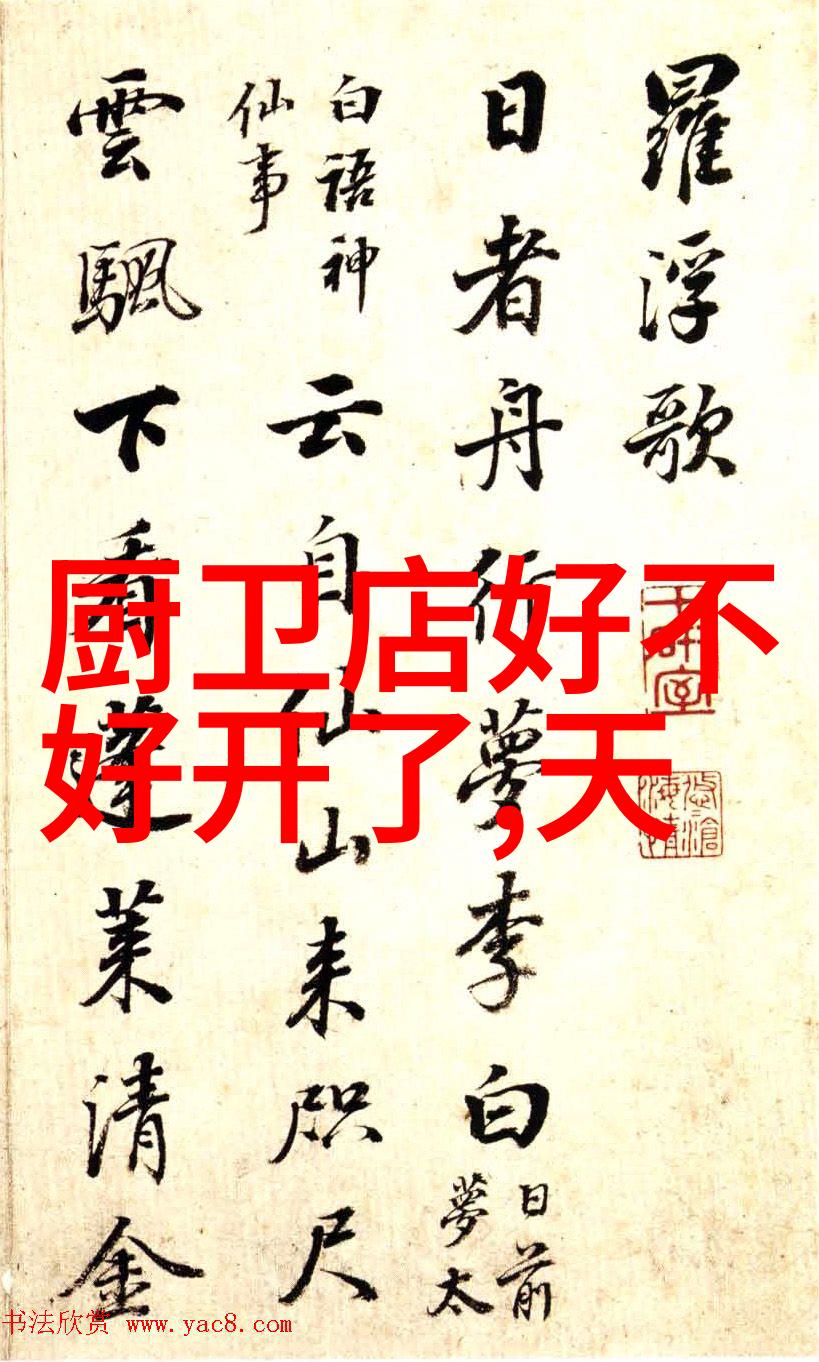 羅浮歌
日者舟行夢李白
日前
夢太
白語神
仙事
云自仙山来咫尺
雲颿下看蓬莱清金
厨卫店好不
好开了,天
书法欣赏 www.yac8.com